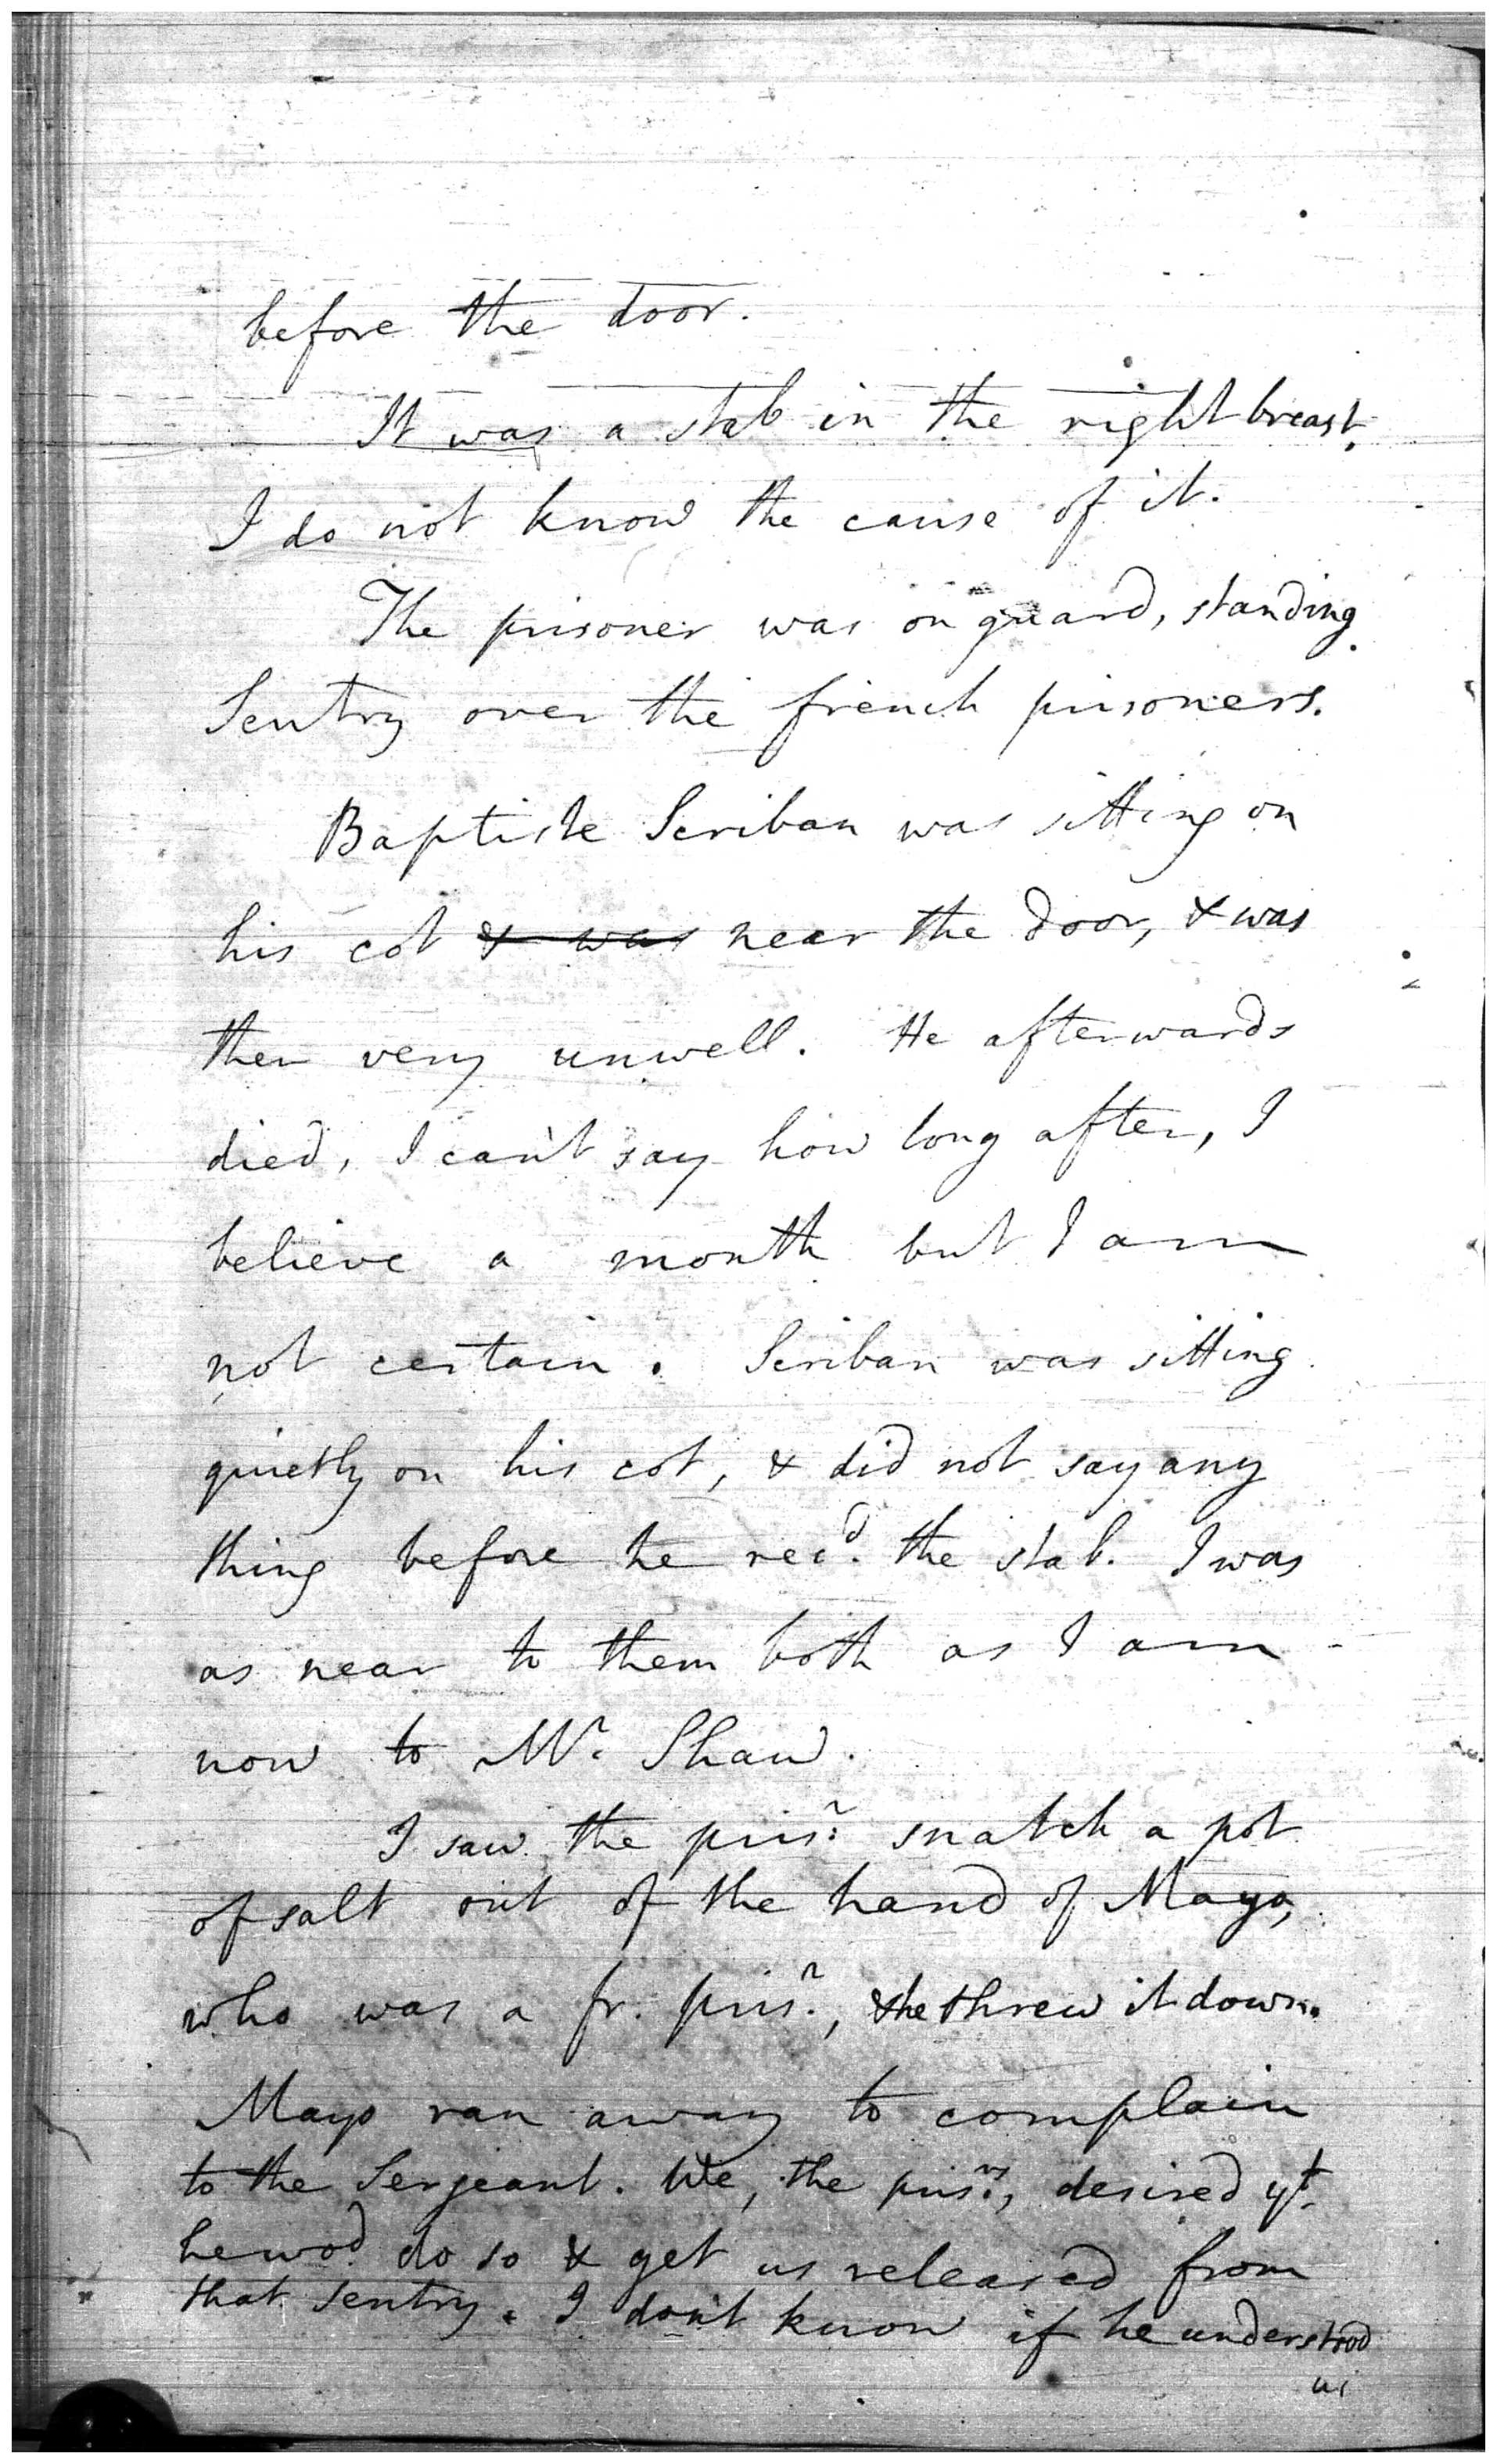 before the door.
It was a stab in the right breast.
I do not know the cause of it.
The prisoner was on guard, standing
Sentry over the french prisoners.
Baptiste Scriban was sitting on
his cot & was near the door, & was
then very unwell. He afterwards
died, I can't say how long after, I
believe a month but I am
not certain. Scriban was sitting
quietly on his cot, & did not say any
thing before he rec.d the stab. I was
as near to them both as I am
now to Mr. Shaw.
I saw the pris.r snatch a pot
of salt out of the hand of Mayo,
who was a fr. pris.r, & he threw it down.
Mayo ran away to complain
to the Sergeant. We, the pris.rs, desired yt.
he wod. do so & get us released from
that Sentry. I don't know if he understood
us